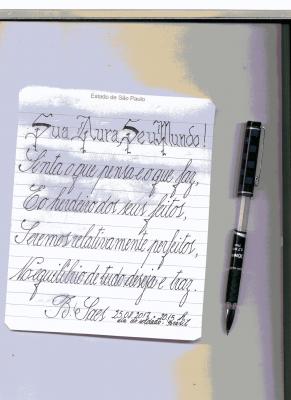 Estado de São Paulo
Sua Aura, Seu Mundo!
Sinta o que pensa e o que faz,
E o herdeiro dos seus feitos,
Seremos relativamente perfeitos,
No equilíbrio de tudo deseja e traz.
B. Saes 25.08.2013
dia do soldado. Brasil